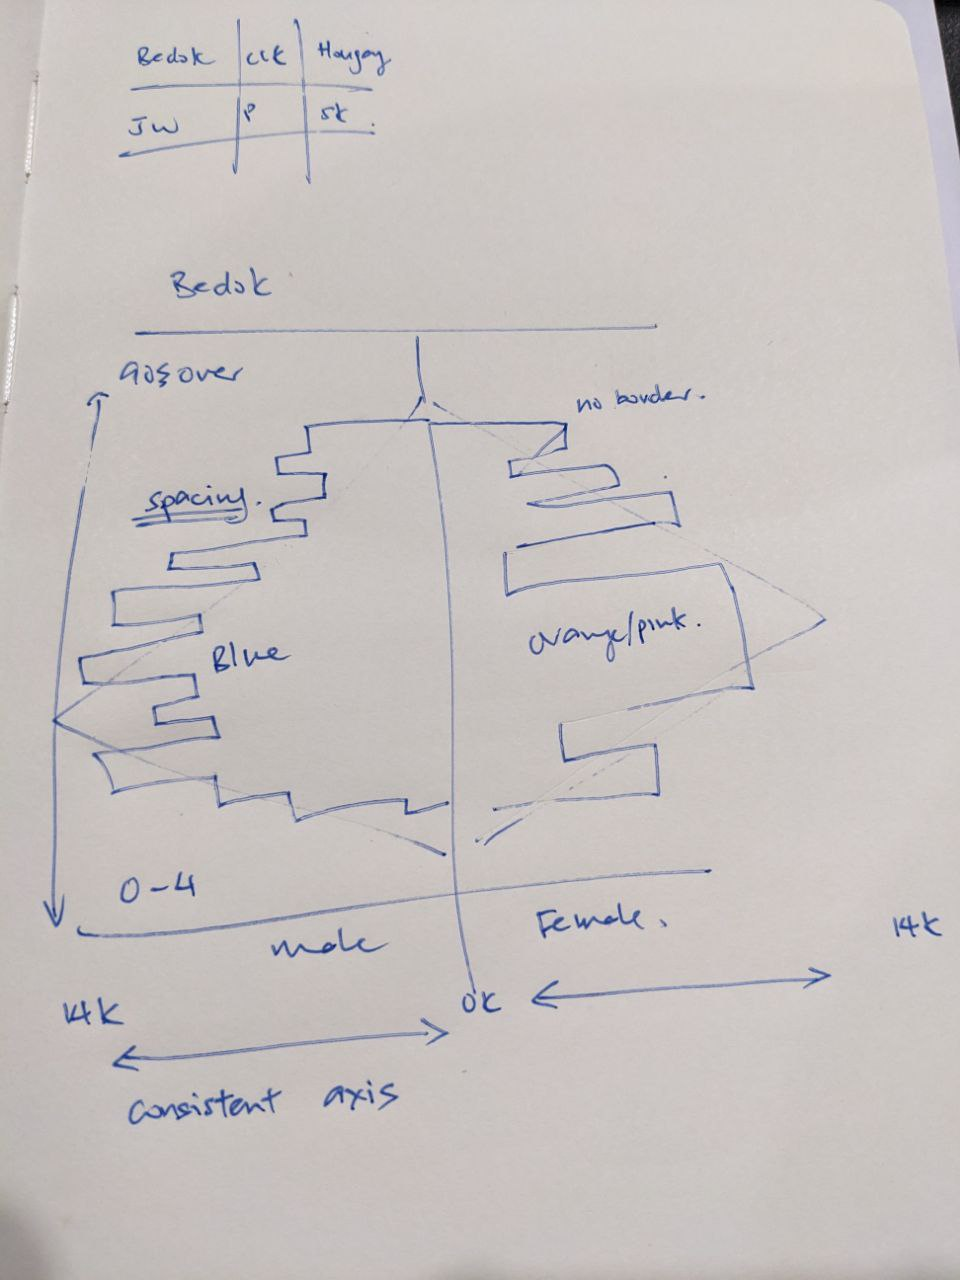 Bedok CCK Hougang
JW P SK.
Bedok
90 & over
no border.
spacing.
Blue
orange/pink.
0-4
male Female.
14K 0K 14K
Consistent axis